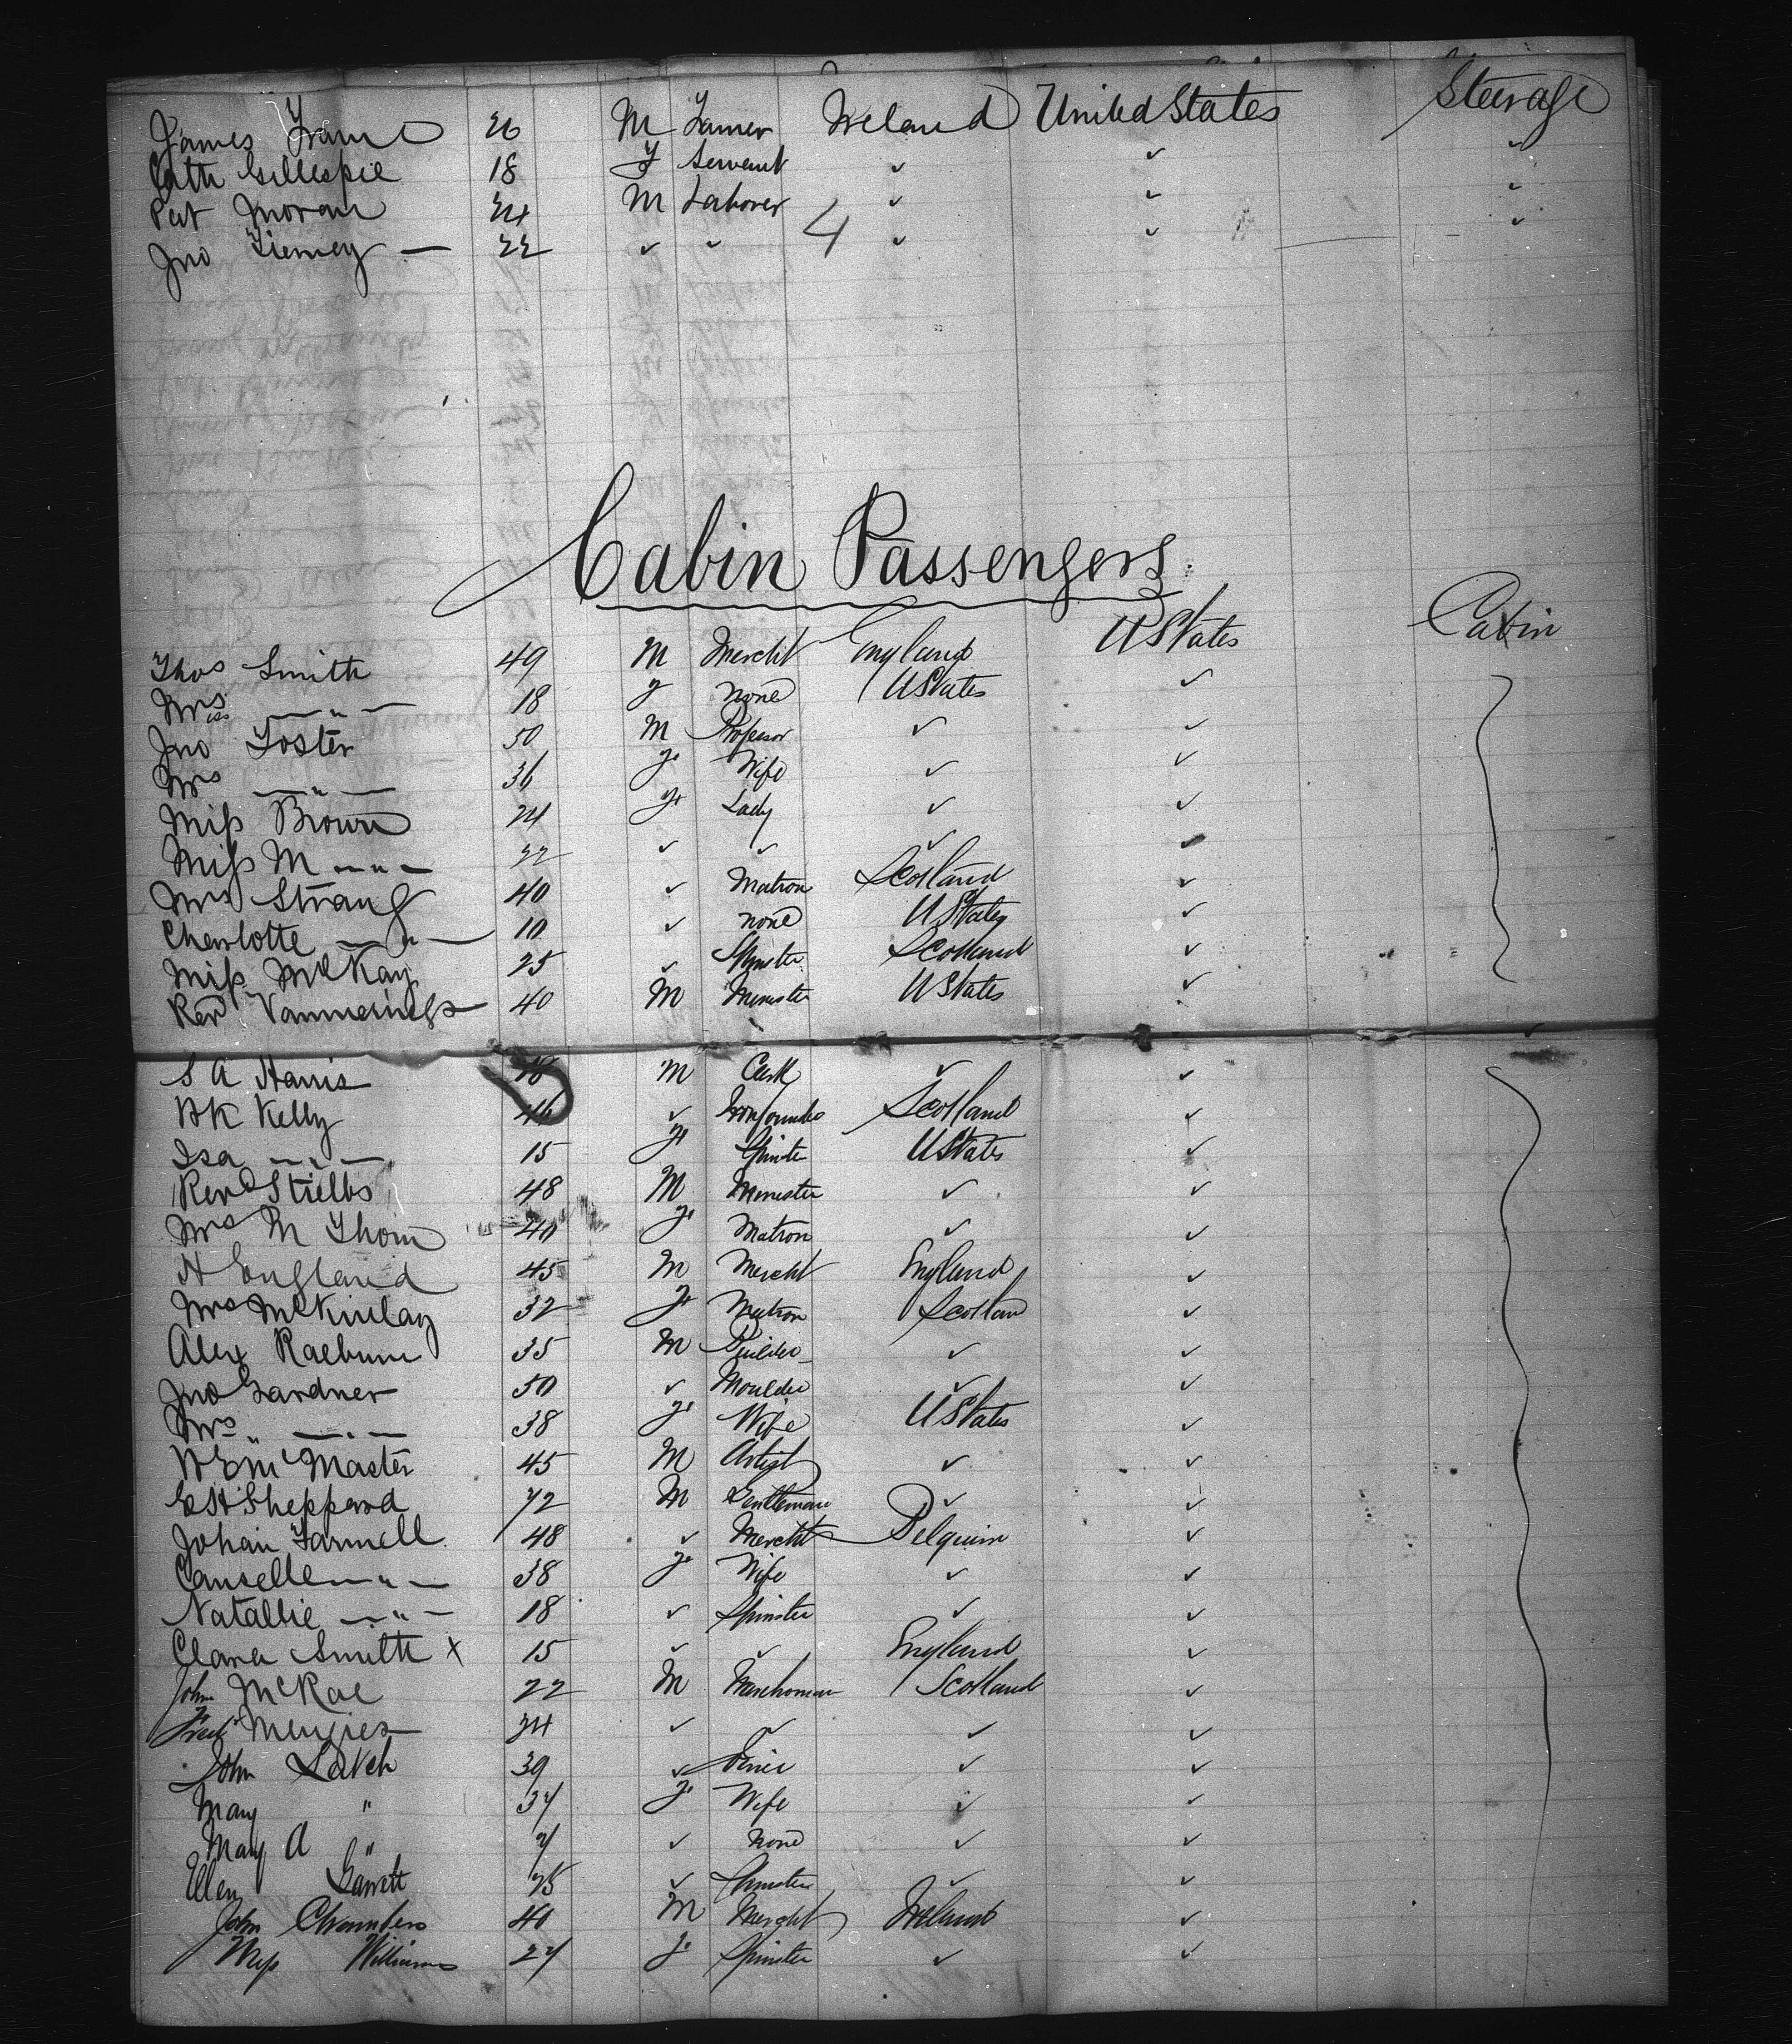 James 26 M Farmer Ireland United States Steerage
Cath Gillespie 18 F Servant ✓ ✓ ✓
Pat Moran 24 M Laborer ✓ ✓ ✓
Jno Tierney — 22 ✓ ✓ 4 ✓ ✓ ✓
Cabin Passengers
Thos Smith 49 M Mercht England U States Cabin
— " — 18 F None U States ✓
Jno Foster 50 M Professor ✓ ✓
Mrs — " — 36 F Wife ✓ ✓
Miss Brown 24 F Lady ✓ ✓
Miss M — " — 22 ✓ ✓ ✓ ✓
Mrs Strang 40 ✓ Matron Scotland ✓
Charlotte — " — 10 ✓ None U States ✓
Miss McKay 25 ✓ Spinster Scotland ✓
Revd 40 M Minister U States ✓
S A Harris M Clerk ✓ ✓
W K Kelly 46 ✓ Ironfounder Scotland ✓
Isa — " — 15 F Spinster U States ✓
Revd 48 M Minister ✓ ✓
Mrs M Thom 40 F Matron ✓ ✓
H England 45 M Mercht England ✓
Mrs McKinlay 32 F Matron Scotland ✓
Alex Raeburn 35 M Builder ✓ ✓
Jno Gardner 50 ✓ Moulder ✓ ✓
Mrs " — " — 38 F Wife U States ✓
W E McMaster 45 M Artist ✓ ✓
Sheppard 72 M Gentleman ✓ ✓
Johan Farmell 48 ✓ Mercht Belguim ✓
— " — 38 F Wife ✓ ✓
Natallie — " — 18 ✓ Spinster ✓ ✓
Clara Smith x 15 ✓ ✓ England ✓
John McRae 22 M Warehoman Scotland ✓
Fredk Menzies 24 ✓ ✓ ✓ ✓
John 39 ✓ Joiner ✓ ✓
Mary " 34 F Wife ✓ ✓
Mary A " ✓ None ✓ ✓
Ellen Garrett 25 ✓ Spinster ✓ ✓
John Chambers 40 M Mercht Ireland ✓
Miss Williams 24 F Spinster ✓ ✓